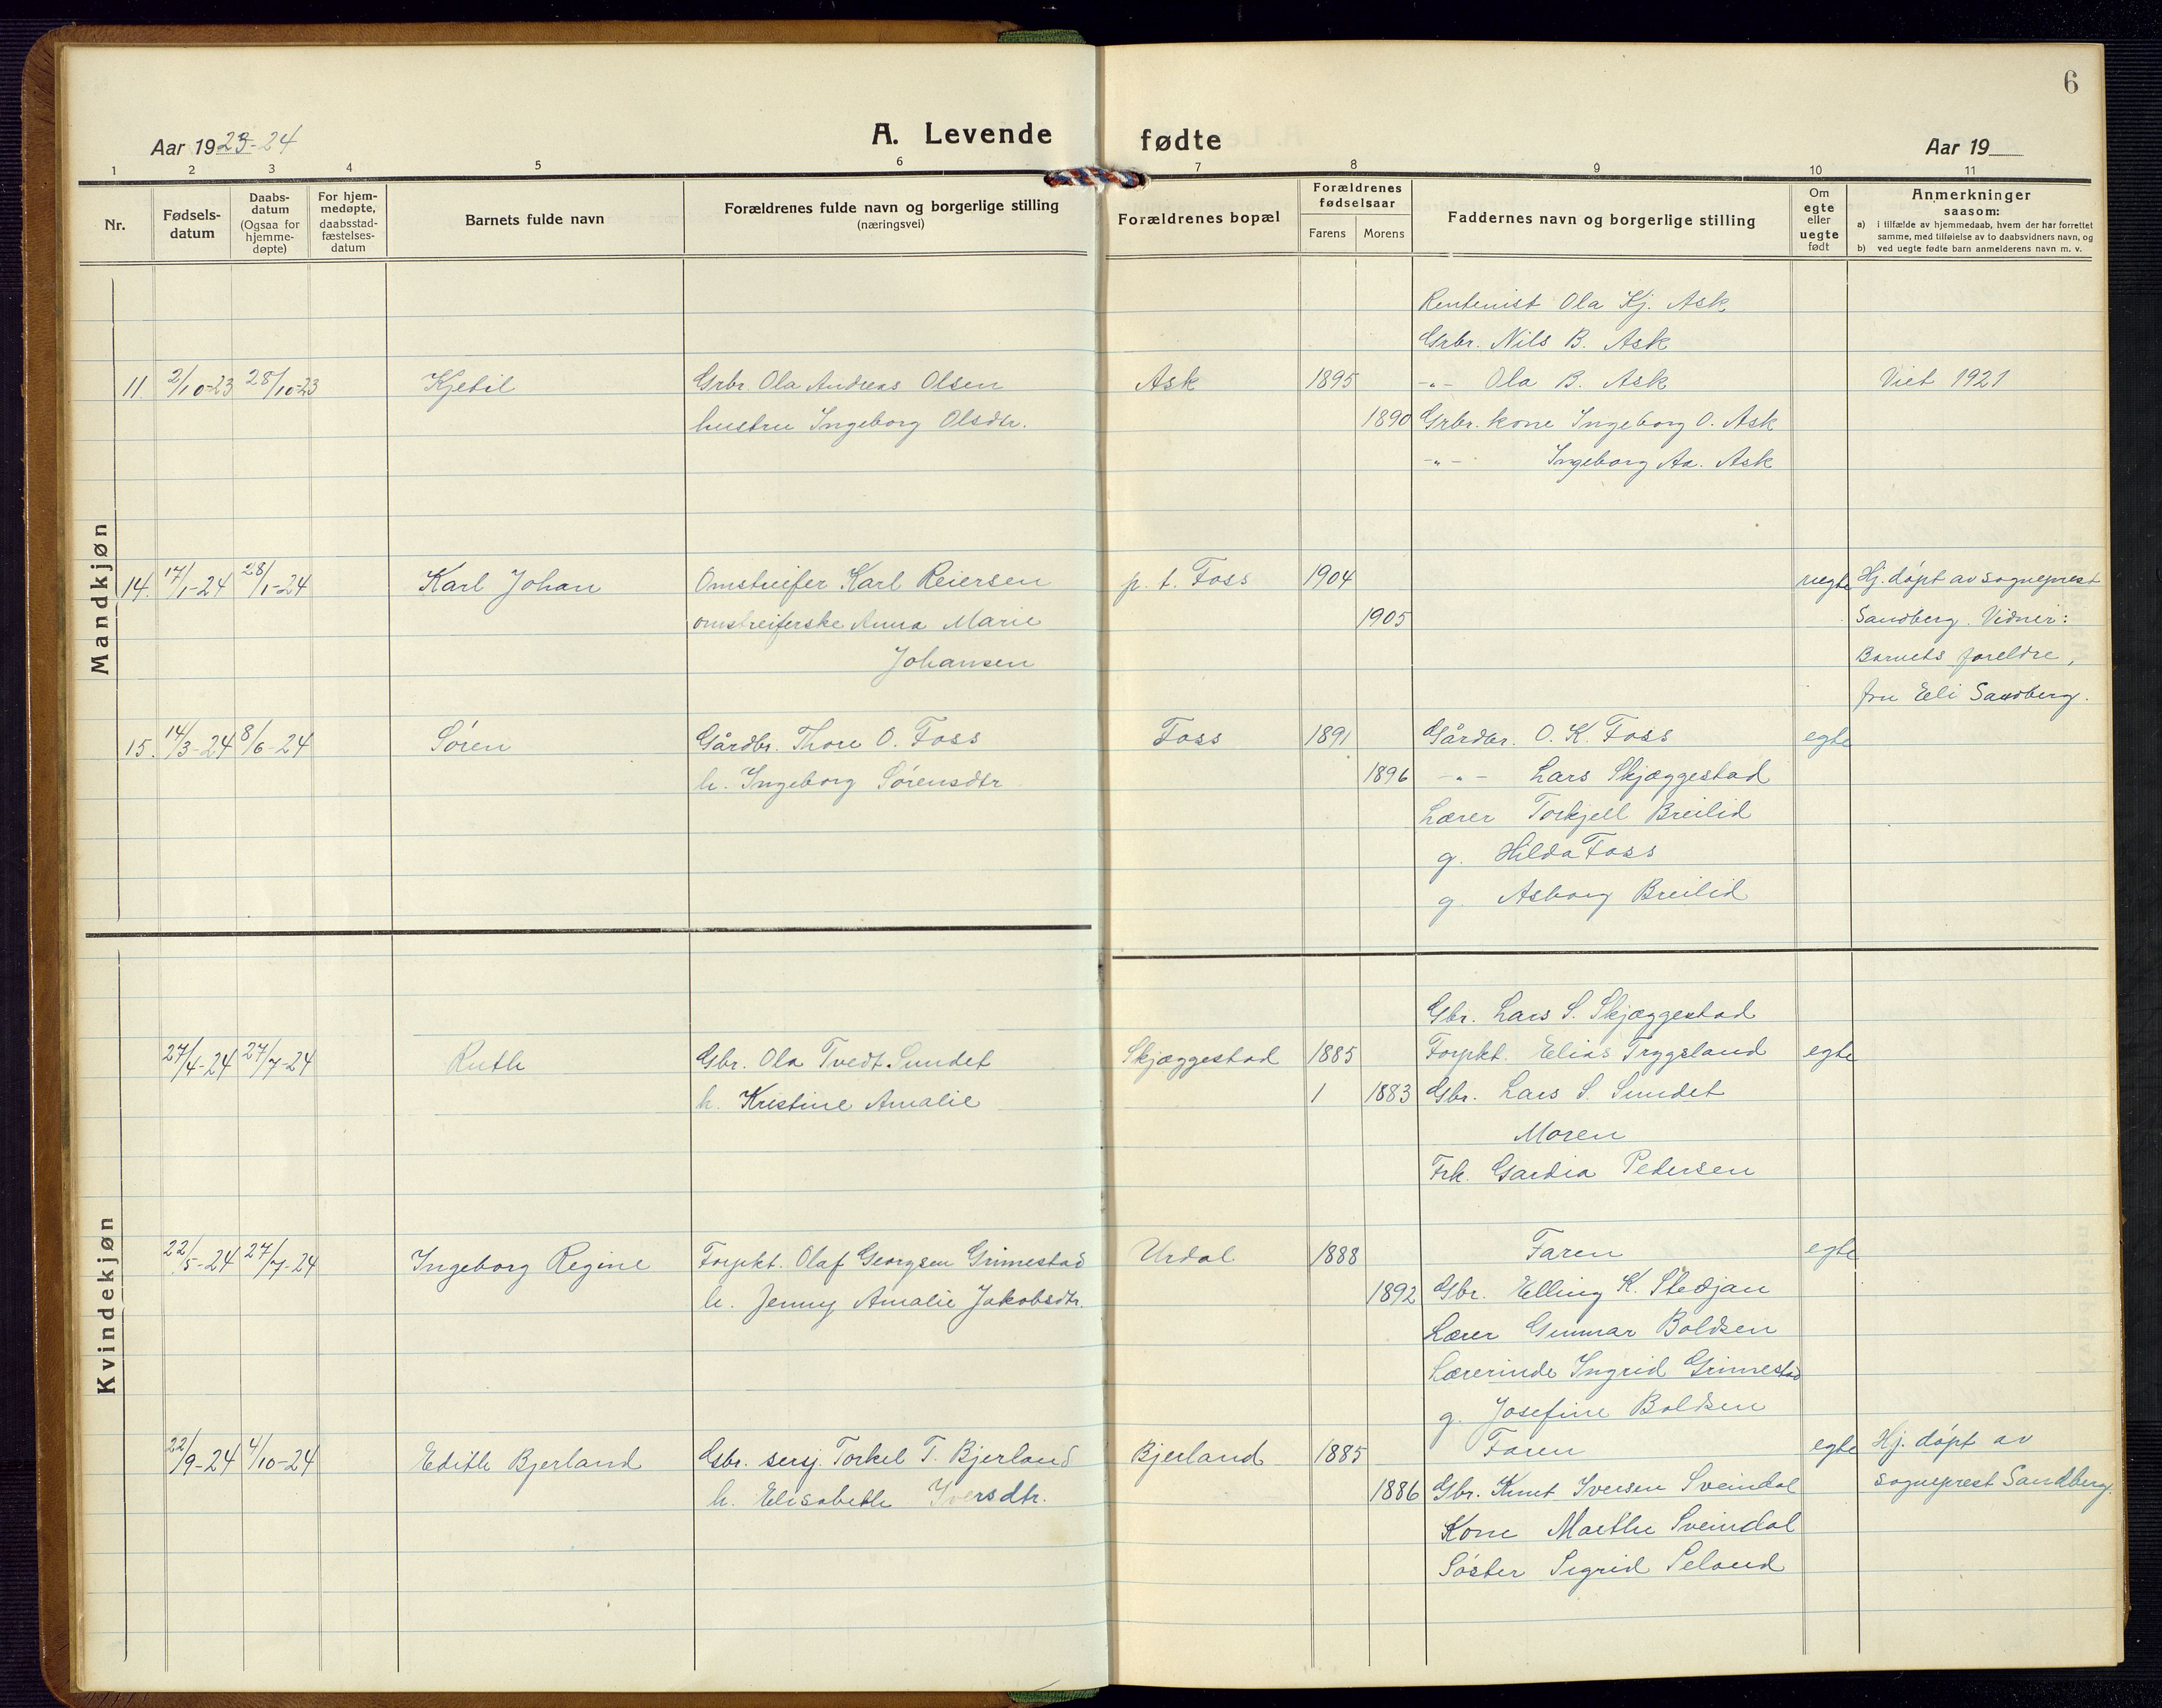 6
Aar 1923-24
A. Levende fødte
Aar 19
1 2 3 4 5 6 7 8 9 10 11
Nr.
Fødsels-
datum
Daabs-
datum
(Ogsaa for
hjemme-
døpte)
For hjem-
medøpte,
daabsstad-
fæstelses-
datum
Barnets fulde navn
Forældrenes fulde navn og borgerlige stilling
(næringsvei)
Forældrenes bopæl
Forældrenes
fødselsaar
Farens Morens
Faddernes navn og borgerlige stilling
Om
egte
eller
uegte
født
Anmerkninger
saasom:
a) i tilfælde av hjemmedaab, hvem der har forrettet
samme, med tilføielse av to daabsvidners navn, og
b) ved uegte fødte barn anmelderens navn m. v.
Mandkjøn
Rentenist Ola Kj. Ask
Grbr. Nils B. Ask
11. 2/10-23 28/10-23 Kjetil Grbr. Ola Andreas Olsen Ask 1895 -"- Ola B. Ask Viet 1921
hustru Ingeborg Olsdtr. 1890 Grbr. kone Ingeborg O. Ask
-"- Ingeborg Aa. Ask
14. 17/1-24 28/1-24 Karl Johan Omstreifer Karl Reiersen p. t. Foss 1904 uegte Hj. døpt av sogneprest
omstreiferske Anna Marie 1905 Sandberg. Vidner:
Johansen Barnets foreldre,
fru Eli Sandberg.
15. 14/3-24 8/6-24 Søren Gårdbr. Thore O. Foss Foss 1891 Gårdbr. O. K. Foss egte
h. Ingeborg Sørensdtr 1896 -"- Lars Skjæggestad
Lærer Torkjell Breilid
g. Hilda Foss
g. Asborg Breilid
Kvindekjøn
Gbr. Lars S. Skjæggestad
27/4-24 27/7-24 Ruth Gbr. Ola Tvedt Sundet Skjæggestad 1885 Forpkt. Elias Trygsland egte
h. Kristine Amalie 1 1883 Gbr. Lars S. Sundet
Moren
Frk. Gardia Pedersen
22/5-24 27/7-24 Ingeborg Regine Forpkt. Olaf Georgsen Grimestad Urdal 1888 Faren egte
h. Jenny Amalie Jakobsdtr. 1892 Gbr. Elling K. Stedjan
Lærer Gunnar Boldsen
Lærerinde Ingrid Grimestad
g. Josefine Boldsen
22/9-24 4/10-24 Edith Bjerland Gbr. sersj. Torkel T. Bjerland Bjerland 1885 Faren egte Hj. døpt av
h. Elisabeth Iversdtr. 1886 Gbr. Knut Iversen Sveindal sogneprest Sandberg.
Kone Marthe Sveindal
Søster Sigrid Seland